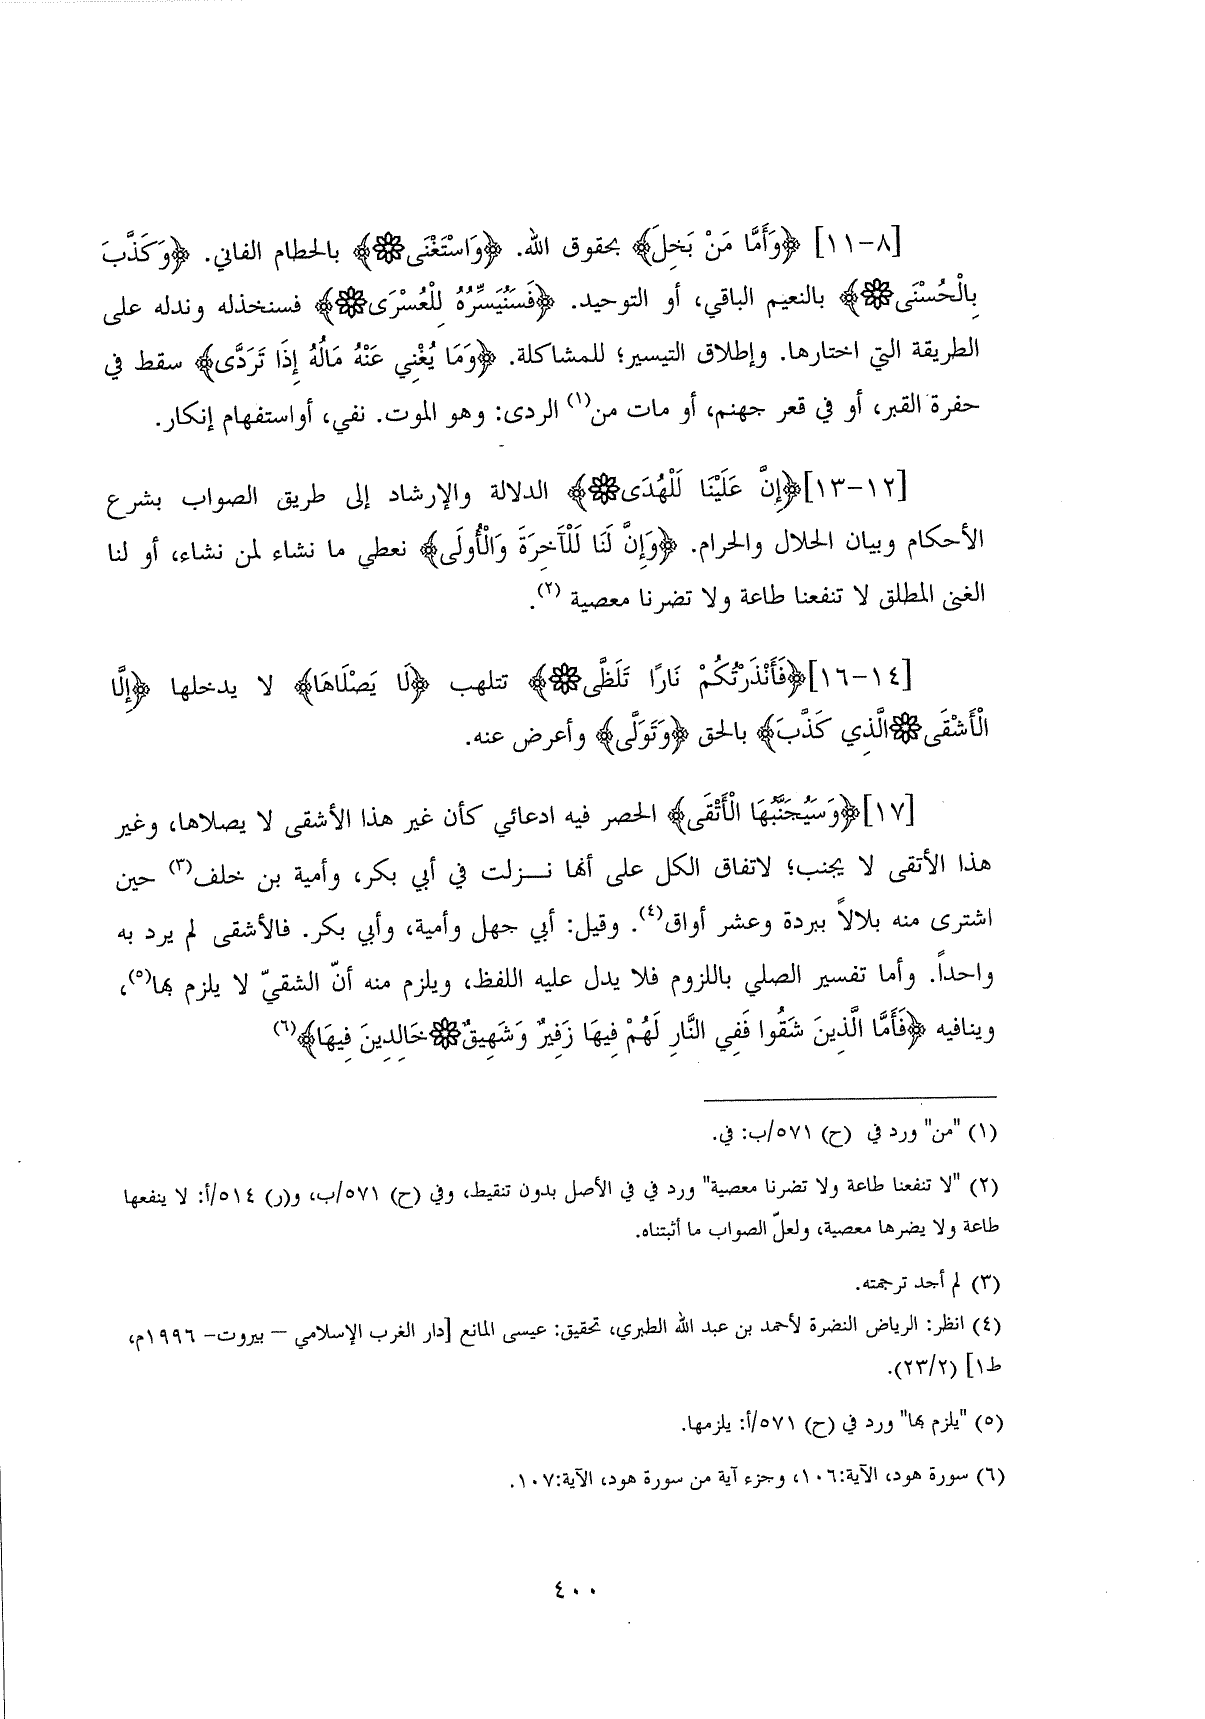 [٨-١١] ﴿وَأَمَّا مَنْ بَخِلَ﴾ بحقوق الله. ﴿وَاسْتَغْنَى۞﴾ بالحطام الفاني. ﴿وَكَذَّبَ
بِالْحُسْنَى۞﴾ بالنعيم الباقي، أو التوحيد. ﴿فَسَنُيَسِّرُهُ لِلْعُسْرَى۞﴾ فسنخذله وندله على
الطريقة التي اختارها. وإطلاق التيسير؛ للمشاكلة. ﴿وَمَا يُغْنِي عَنْهُ مَالُهُ إِذَا تَرَدَّى﴾ سقط في
حفرة القبر، أو في قعر جهنم، أو مات من(١) الردى: وهو الموت. نفي، أواستفهام إنكار.
[١٢-١٣]﴿إِنَّ عَلَيْنَا لَلْهُدَى۞﴾ الدلالة والإرشاد إلى طريق الصواب بشرع
الأحكام وبيان الحلال والحرام. ﴿وَإِنَّ لَنَا لَلْآخِرَةَ وَالْأُولَى﴾ نعطي ما نشاء لمن نشاء، أو لنا
الغنى المطلق لا تنفعنا طاعة ولا تضرنا معصية (٢).
[١٤-١٦]﴿فَأَنْذَرْتُكُمْ نَارًا تَلَظَّى۞﴾ تتلهب ﴿لَا يَصْلَاهَا﴾ لا يدخلها ﴿إِلَّا
الْأَشْقَى۞الَّذِي كَذَّبَ﴾ بالحق ﴿وَتَوَلَّى﴾ وأعرض عنه.
[١٧]﴿وَسَيُجَنَّبُهَا الْأَتْقَى﴾ الحصر فيه ادعائي كأن غير هذا الأشقى لا يصلاها، وغير
هذا الأتقى لا يجنب؛ لاتفاق الكل على أنها نـــزلت في أبي بكر، وأمية بن خلف(٣) حين
اشترى منه بلالاً ببردة وعشر أواق(٤). وقيل: أبي جهل وأمية، وأبي بكر. فالأشقى لم يرد به
واحداً. وأما تفسير الصلي باللزوم فلا يدل عليه اللفظ، ويلزم منه أنّ الشقيّ لا يلزم بها(٥)،
وينافيه ﴿فَأَمَّا الَّذِينَ شَقُوا فَفِي النَّارِ لَهُمْ فِيهَا زَفِيرٌ وَشَهِيقٌ۞خَالِدِينَ فِيهَا﴾(٦)
(١) "من" ورد في (ح) ٥٧١/ب: في.
(٢) "لا تنفعنا طاعة ولا تضرنا معصية" ورد في في الأصل بدون تنقيط، وفي (ح) ٥٧١/ب، و(ر) ٥١٤/أ: لا ينفعها
طاعة ولا يضرها معصية، ولعلّ الصواب ما أثبتناه.
(٣) لم أجد ترجمته.
(٤) انظر: الرياض النضرة لأحمد بن عبد الله الطبري، تحقيق: عيسى المانع [دار الغرب الإسلامي – بيروت- ١٩٩٦م،
ط١] (٢٣/٢).
(٥) "يلزم بها" ورد في (ح) ٥٧١/أ: يلزمها.
(٦) سورة هود، الآية:١٠٦، وجزء آية من سورة هود، الآية:١٠٧.
٤٠٠